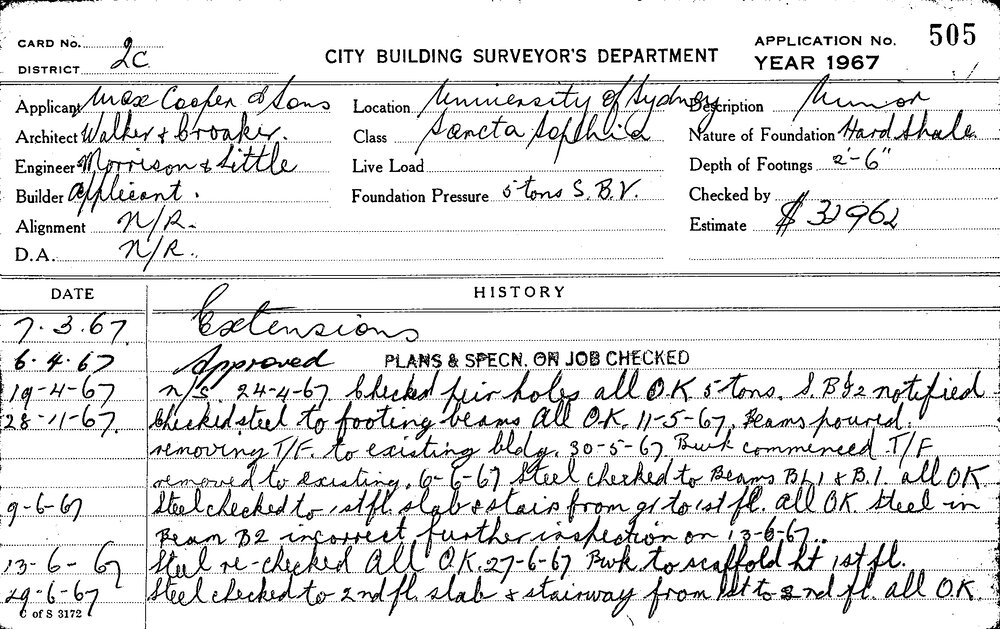 CARD No.
DISTRICT 2C
CITY BUILDING SURVEYOR'S DEPARTMENT
APPLICATION No. 505
YEAR 1967
Applicant Max Cooper & Sons
Architect Walker & Croaker.
Engineer Morrison & Little
Builder Applicant.
Alignment N/R.
D.A. N/R.
Location University of Sydney
Class Sancta Sophia
Live Load
Foundation Pressure 5 tons S.B.V.
Description Minor
Nature of Foundation Hard Shale
Depth of Footings 2'-6"
Checked by
Estimate $ 32962
DATE HISTORY
7.3.67 Extensions
6.4.67 Approved PLANS & SPECN. ON JOB CHECKED
19-4-67 n/s. 24-4-67 Checked peir holes all O.K 5 tons. S. notified
28-11-67. Checked steel to footing beams All O.K. 11-5-67. Beams poured.
removing T/F. to existing bldg. 30-5-67. Bwk commenced T/F
removed to existing. 6-6-67 Steel checked to Beams BL1 & B.1. all OK
9-6-67 Steel checked to 1st fl. slab & stairs from gr to 1st fl. all OK. Steel in
Beam B2 incorrect further inspection on 13-6-67..
13-6-67 Steel re-checked All O.K. 27-6-67 Bwk to scaffold ht 1st fl.
29-6-67 Steel checked to 2nd fl slab & stairway from 1st to 2nd fl. all O.K.
C of S 3172